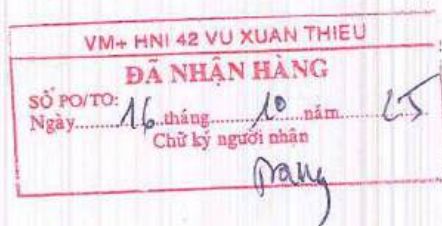 VM+ HNI 42 VU XUAN THIEU
ĐÃ NHẬN HÀNG
SỐ PO/TO:
Ngày.......16.tháng........10.....năm.......25
Chữ ký người nhận
Trang